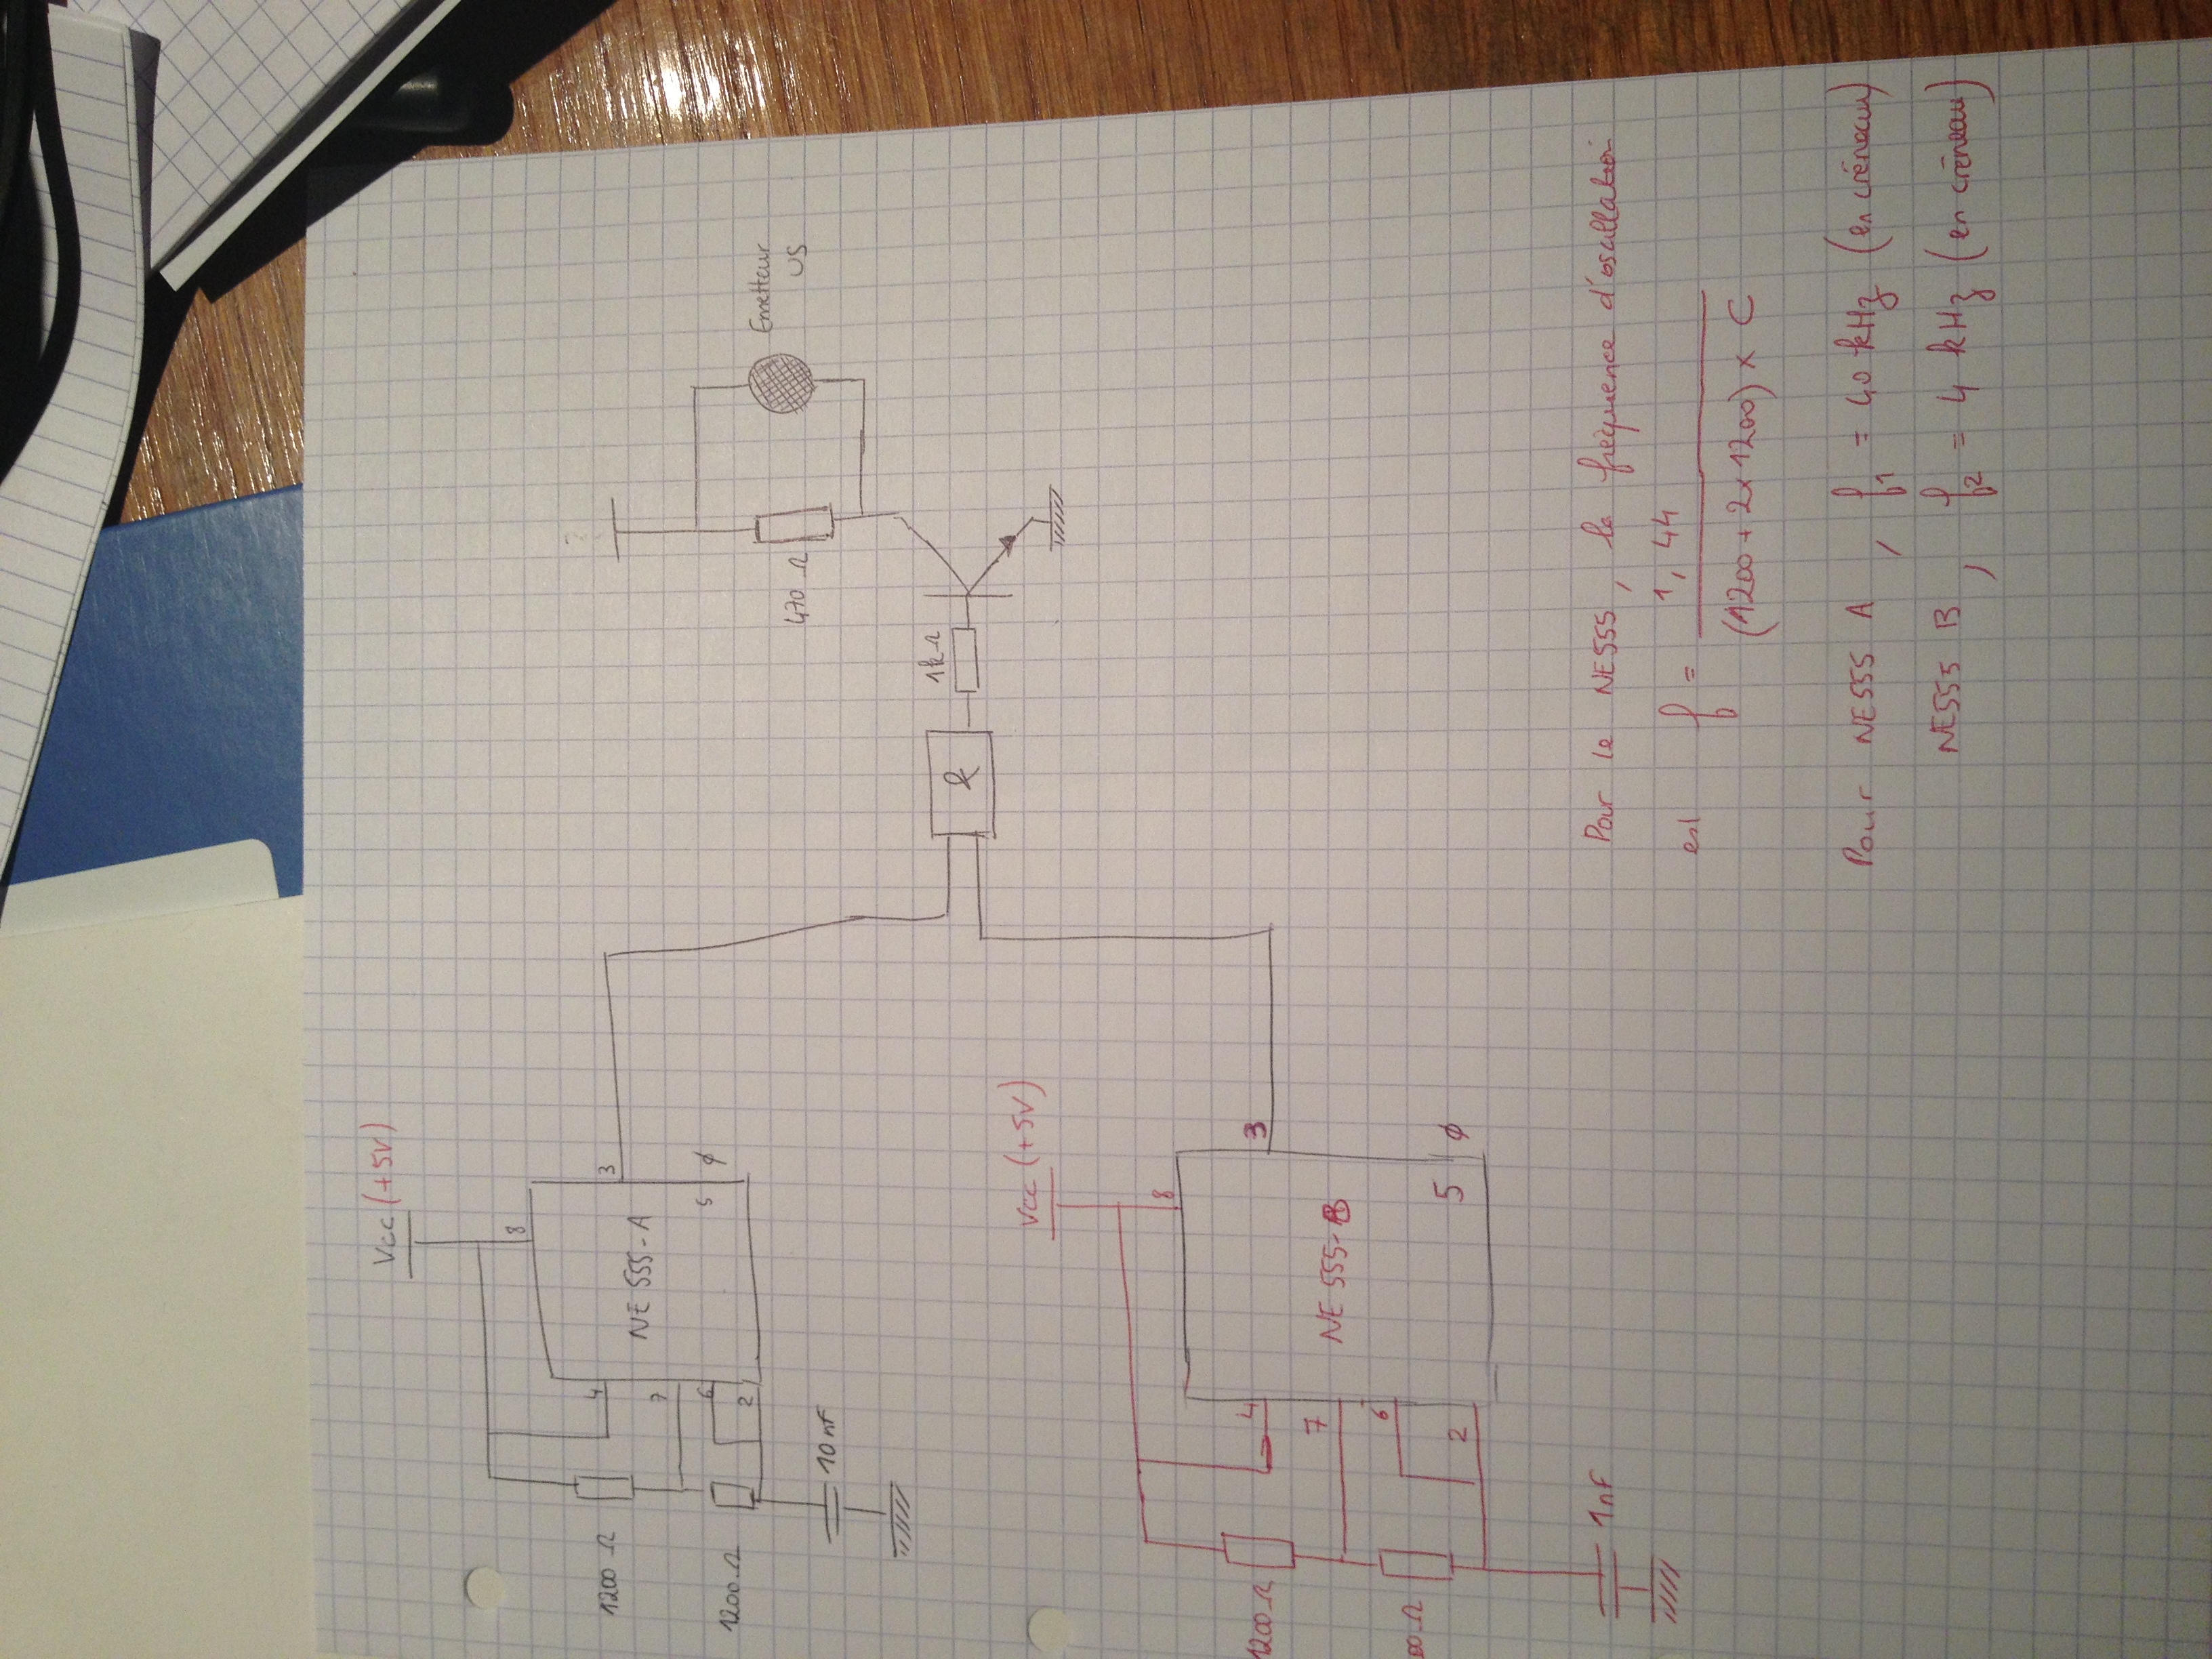 Vcc (+5V)
8
4
3
7
NE 555-A
6
5
2
1200 Ω
1200 Ω
10 nF
Vcc (+5V)
8
4
3
7
NE 555-B
6
5
2
1200 Ω
00 Ω
1 nF
&
1kΩ
470 Ω
Emetteur
US
Pour le NE555, la fréquence d'oscillation
est f = 1,44
(1200 + 2x1200) x C
Pour NE555 A, f1 = 40 kHz (en créneau)
NE555 B, f2 = 4 kHz (en créneau)